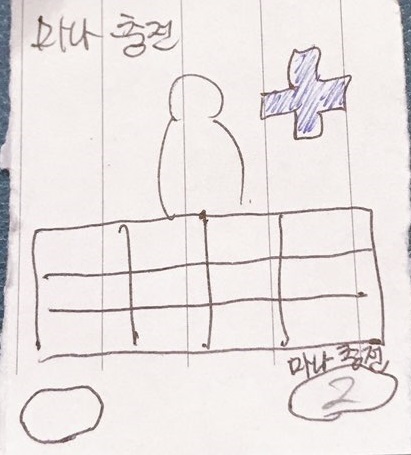 마나 충전
마나 충전
2